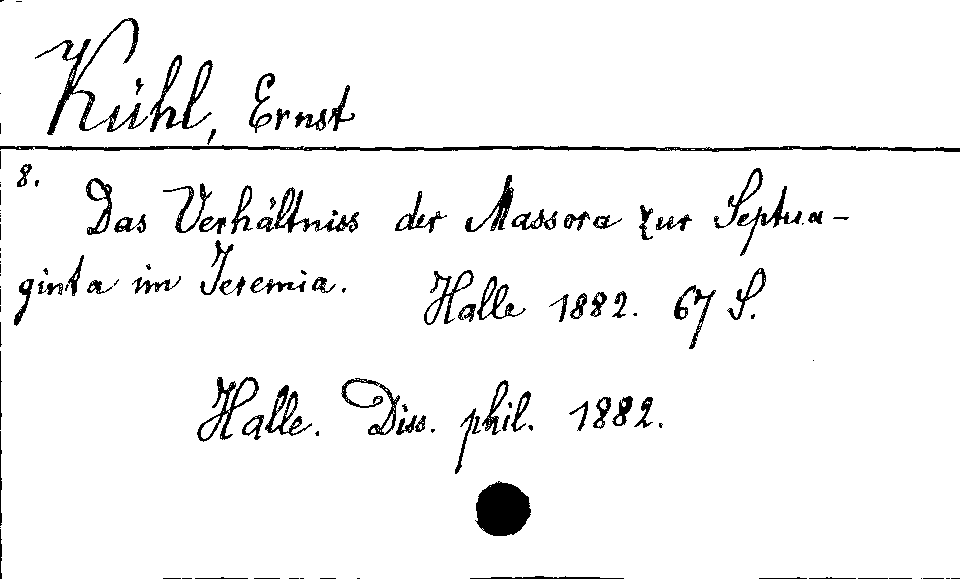 Kühl, Ernst
8.
Das Verhältniss der Massora zur Septua-
ginta im Jeremia.
Halle 1882. 67 S.
Halle. Diss. phil. 1882.